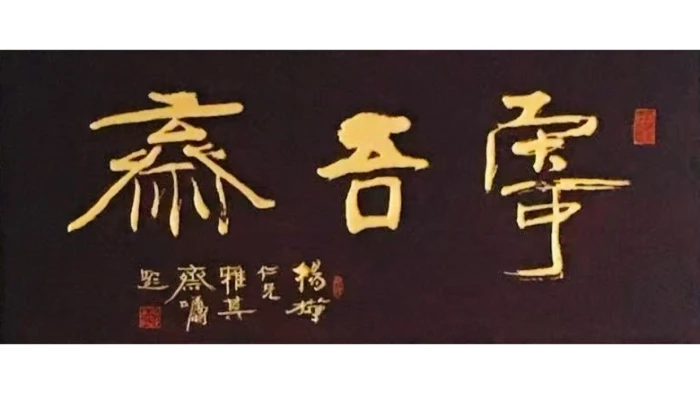 吾齋
楊樺
仁兄
雅其
齋囑
題